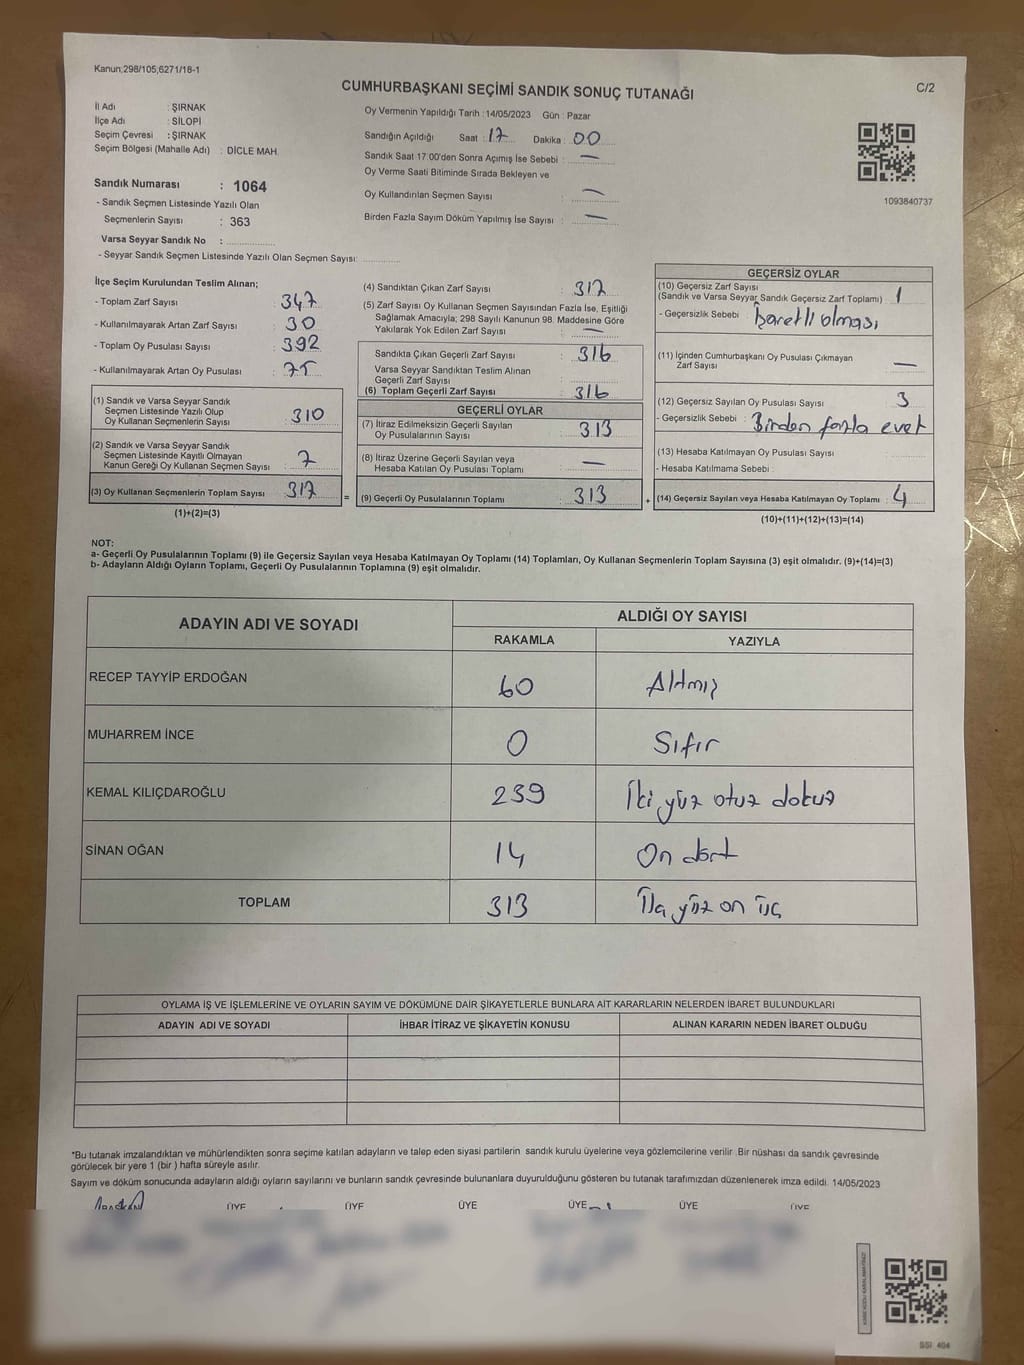 Kanun;298/105,6271/18-1
C/2
CUMHURBAŞKANI SEÇİMİ SANDIK SONUÇ TUTANAĞI
İl Adı : ŞIRNAK
İlçe Adı : SİLOPİ
Seçim Çevresi : ŞIRNAK
Seçim Bölgesi (Mahalle Adı) : DİCLE MAH.
Sandık Numarası : 1064
- Sandık Seçmen Listesinde Yazılı Olan
Seçmenlerin Sayısı : 363
Varsa Seyyar Sandık No :
- Seyyar Sandık Seçmen Listesinde Yazılı Olan Seçmen Sayısı:
Oy Vermenin Yapıldığı Tarih : 14/05/2023 Gün : Pazar
Sandığın Açıldığı Saat : 17 Dakika : 00
Sandık Saat 17:00'den Sonra Açımış İse Sebebi : —
Oy Verme Saati Bitiminde Sırada Bekleyen ve
Oy Kullandırılan Seçmen Sayısı : —
Birden Fazla Sayım Döküm Yapılmış İse Sayısı : —
1093840737
İlçe Seçim Kurulundan Teslim Alınan;
- Toplam Zarf Sayısı : 347
- Kullanılmayarak Artan Zarf Sayısı : 30
- Toplam Oy Pusulası Sayısı : 392
- Kullanılmayarak Artan Oy Pusulası : 75
(1) Sandık ve Varsa Seyyar Sandık
Seçmen Listesinde Yazılı Olup
Oy Kullanan Seçmenlerin Sayısı : 310
(2) Sandık ve Varsa Seyyar Sandık
Seçmen Listesinde Kayıtlı Olmayan
Kanun Gereği Oy Kullanan Seçmen Sayısı : 7
(3) Oy Kullanan Seçmenlerin Toplam Sayısı : 317
(1)+(2)=(3)
(4) Sandıktan Çıkan Zarf Sayısı : 317
(5) Zarf Sayısı Oy Kullanan Seçmen Sayısından Fazla İse, Eşitliği
Sağlamak Amacıyla; 298 Sayılı Kanunun 98. Maddesine Göre
Yakılarak Yok Edilen Zarf Sayısı : —
Sandıkta Çıkan Geçerli Zarf Sayısı : 316
Varsa Seyyar Sandıktan Teslim Alınan
Geçerli Zarf Sayısı :
(6) Toplam Geçerli Zarf Sayısı : 316
GEÇERLİ OYLAR
(7) İtiraz Edilmeksizin Geçerli Sayılan
Oy Pusulalarının Sayısı : 313
(8) İtiraz Üzerine Geçerli Sayılan veya
Hesaba Katılan Oy Pusulası Toplamı : —
= (9) Geçerli Oy Pusulalarının Toplamı : 313 +
GEÇERSİZ OYLAR
(10) Geçersiz Zarf Sayısı
(Sandık ve Varsa Seyyar Sandık Geçersiz Zarf Toplamı) : 1
- Geçersizlik Sebebi : İşaretli olması
(11) İçinden Cumhurbaşkanı Oy Pusulası Çıkmayan
Zarf Sayısı : —
(12) Geçersiz Sayılan Oy Pusulası Sayısı : 3
- Geçersizlik Sebebi : Birden fazla evet
(13) Hesaba Katılmayan Oy Pusulası Sayısı :
- Hesaba Katılmama Sebebi :
(14) Geçersiz Sayılan veya Hesaba Katılmayan Oy Toplamı : 4
(10)+(11)+(12)+(13)=(14)
NOT:
a- Geçerli Oy Pusulalarının Toplamı (9) ile Geçersiz Sayılan veya Hesaba Katılmayan Oy Toplamı (14) Toplamları, Oy Kullanan Seçmenlerin Toplam Sayısına (3) eşit olmalıdır. (9)+(14)=(3)
b- Adayların Aldığı Oyların Toplamı, Geçerli Oy Pusulalarının Toplamına (9) eşit olmalıdır.
ADAYIN ADI VE SOYADI ALDIĞI OY SAYISI
RAKAMLA YAZIYLA
RECEP TAYYİP ERDOĞAN 60 Altmış
MUHARREM İNCE 0 Sıfır
KEMAL KILIÇDAROĞLU 239 İki yüz otuz dokuz
SİNAN OĞAN 14 On dört
TOPLAM 313 yüz on üç
OYLAMA İŞ VE İŞLEMLERİNE VE OYLARIN SAYIM VE DÖKÜMÜNE DAİR ŞİKAYETLERLE BUNLARA AİT KARARLARIN NELERDEN İBARET BULUNDUKLARI
ADAYIN ADI VE SOYADI İHBAR İTİRAZ VE ŞİKAYETİN KONUSU ALINAN KARARIN NEDEN İBARET OLDUĞU
*Bu tutanak imzalandıktan ve mühürlendikten sonra seçime katılan adayların ve talep eden siyasi partilerin sandık kurulu üyelerine veya gözlemcilerine verilir .Bir nüshası da sandık çevresinde
görülecek bir yere 1 (bir ) hafta süreyle asılır.
Sayım ve döküm sonucunda adayların aldığı oyların sayılarını ve bunların sandık çevresinde bulunanlara duyurulduğunu gösteren bu tutanak tarafımızdan düzenlenerek imza edildi. 14/05/2023
BAŞKAN ÜYE ÜYE ÜYE ÜYE ÜYE ÜYE